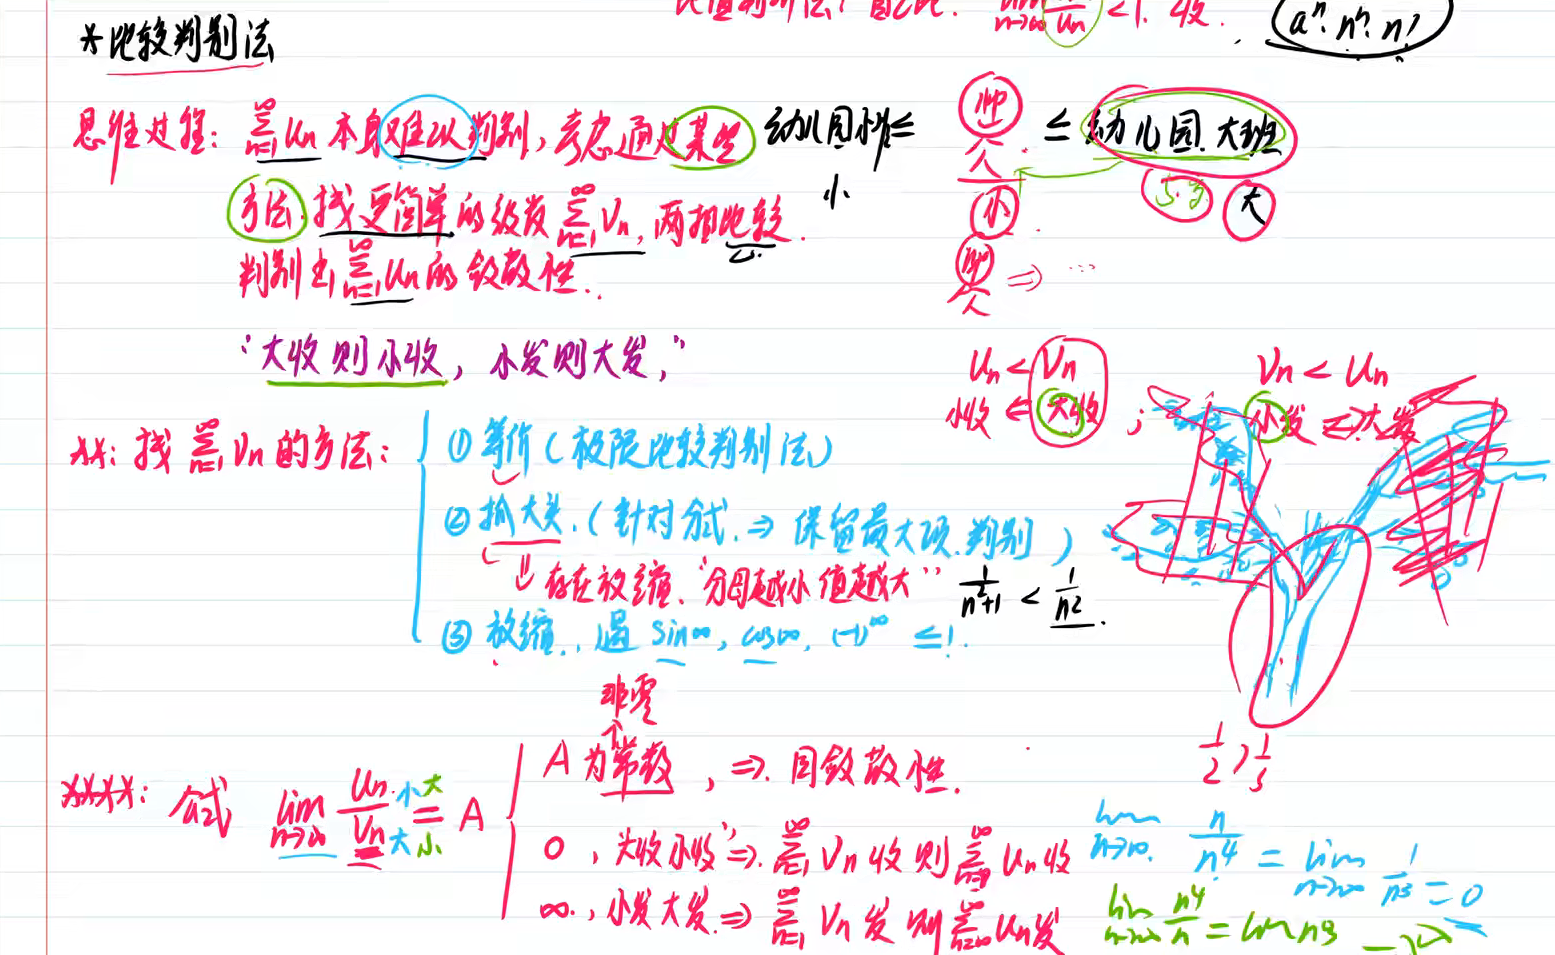 比值判别法: lim n→∞ Un <1. 收. aⁿ. nⁿ. n!
*比较判别法
思维过程: ∑n=1∞ Un 本身难以判别, 考虑通过某些
方法. 找更简单的级数 ∑n=1∞ Vn, 两相比较.
判别出 ∑n=1∞ Un 的敛散性..
幼儿园小 ≤ 帅 人 ≤ 幼儿园.大班
小
小
大
⇒ ...
“大收则小收, 小发则大发,”
Un < Vn
小收 ⇐ 大收 ;
Vn < Un
小发 ⇒ 大发
**: 找 ∑n=1∞ Vn 的方法:
① 等价 (极限比较判别法)
② 抓大头. (针对分式. ⇒ 保留最大项. 判别)
⇓ 存在放缩. “分母越小 值越大” 1/(n²+1) < 1/n².
③ 放缩.. 遇 sin∞, cos∞, (-1)^∞ ≤ 1.
1/2 > 1/3
非零
↑
****: 公式 lim n→∞ Un/Vn 小/大 = 大/小 A
A 为常数, ⇒. 同敛散性.
0, “大收小收” ⇒. ∑n=1∞ Vn 收则 ∑ Un 收
∞., 小发大发. ⇒ ∑n=1∞ Vn 发 则 ∑ Un 发
lim n→∞. n/n⁴ = lim n→∞ 1/n³ = 0
lim n→∞ n⁴/n = lim n³ → ∞